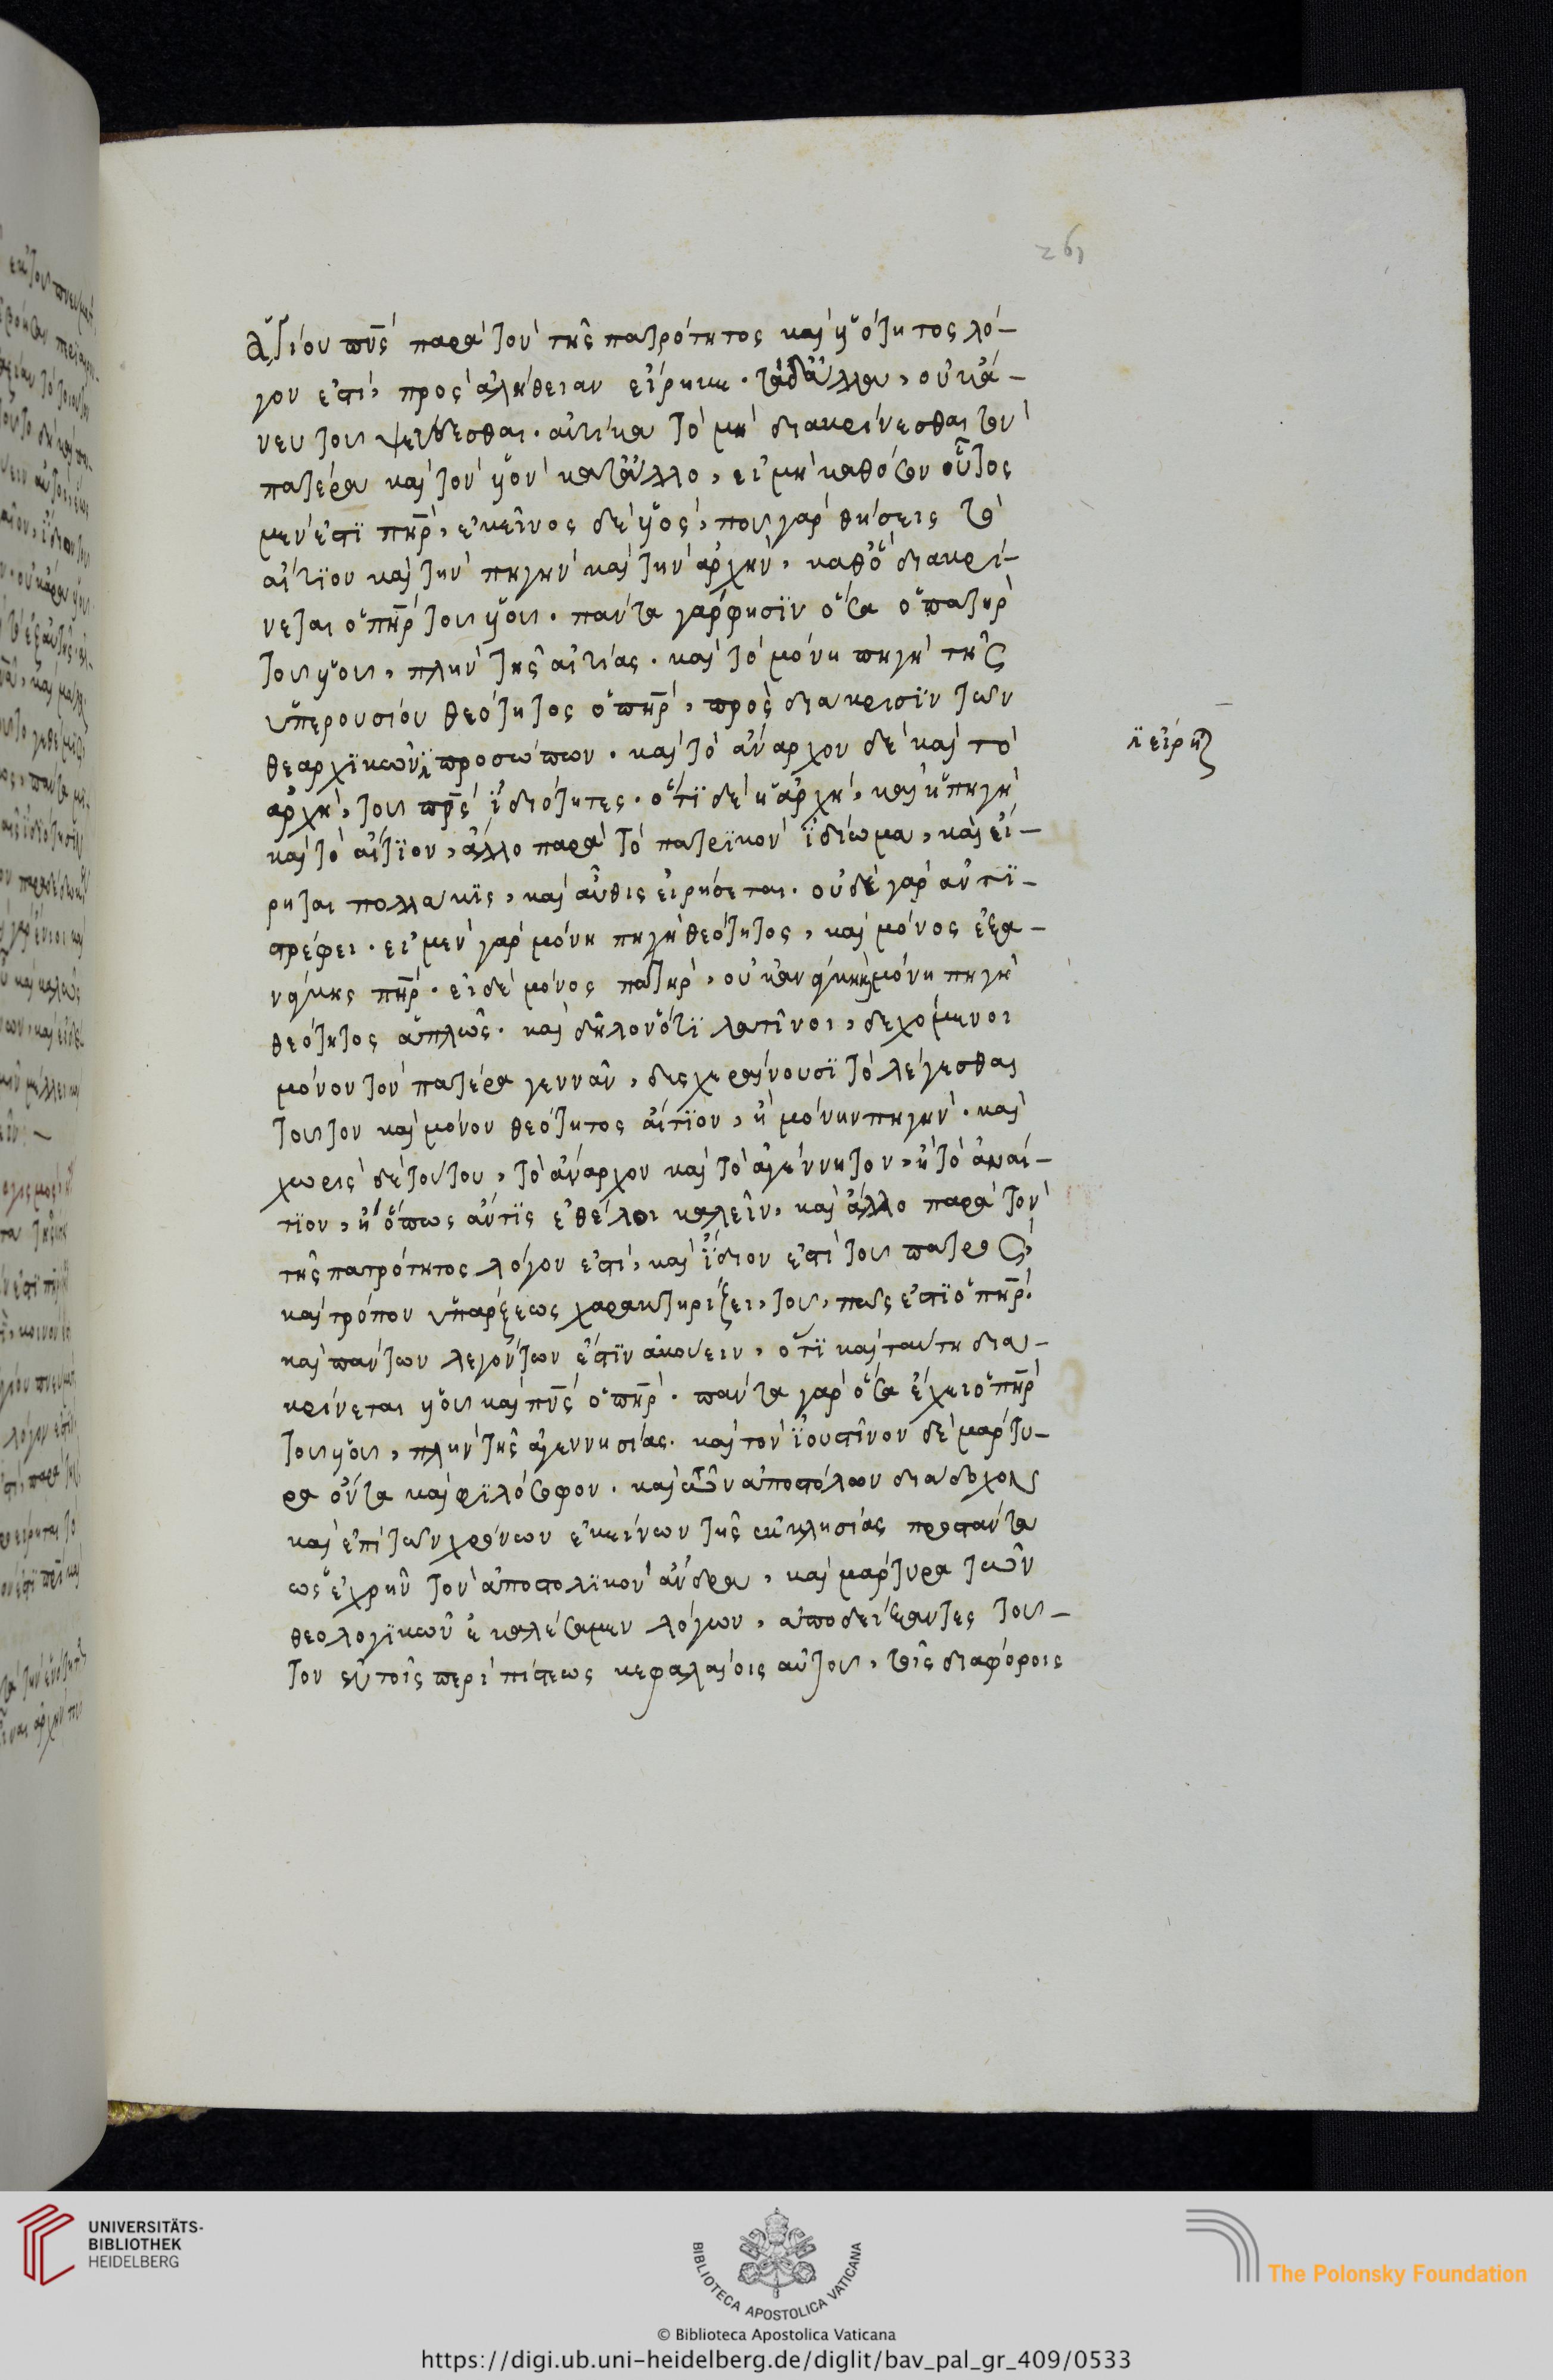 261
ἁγίου πνς παρὰ τὸν τῆς πατρότητος καὶ υἱότητος λό-
γον ἐστὶ, πρὸς ἀλήθειαν εἴρηκε. τὰ δ' ἄλλα, οὐκ ἄ-
νευ τοῦ ψεύδεσθαι. αὐτίκα τὸ μὴ διακρίνεσθαι τὸν
πατέρα καὶ τὸν υἱὸν κατ' ἄλλο, εἰ μὴ καθόσον οὗτος
μὲν ἐστὶ πηρ, ἐκεῖνος δὲ υἱὸς, ποῦ γὰρ θήσεις τὸ
αἴτιον καὶ τὴν πηγὴν καὶ τὴν ἀρχὴν, καθὸ διακρί-
νεται ὁ πηρ τοῦ υἱοῦ. πάντα γὰρ φησὶν ὅσα ὁ πατὴρ
τοῦ υἱοῦ, πλὴν τῆς αἰτίας. καὶ τὸ μόνη πηγὴ τῆς
ὑπερουσίου θεότητος ὁ πηρ, πρὸς διάκρισιν τῶν
θεαρχικῶν προσώπων. καὶ τὸ ἄναρχον δὲ καὶ τὸ
ἀρχὴ, τοῦ πρς ἰδιότητες. ὅτι δὲ ἡ ἀρχὴ, καὶ ἡ πηγὴ
καὶ τὸ αἴτιον, ἄλλο παρὰ τὸ πατρικὸν ἰδίωμα, καὶ εἴ-
ρηται πολλάκις, καὶ αὖθις εἰρήσεται. οὐδὲ γὰρ ἀντι-
στρέφει. εἰ μὲν γὰρ μόνη πηγὴ θεότητος, καὶ μόνος ἐξα-
νάγκης πηρ. εἰ δὲ μόνος πατὴρ, οὐκ ἀνάγκη καὶ μόνη πηγὴ
θεότητος ἁπλῶς. καὶ δῆλον ὅτι λατῖνοι, δεχόμενοι
μόνον τὸν πατέρα γεννᾶν, δυσχεραίνουσι τὸ λέγεσθαι
τοῦτον καὶ μόνον θεότητος αἴτιον, ἢ μόνην πηγήν. καὶ
χωρὶς δὲ τούτου, τὸ ἄναρχον καὶ τὸ ἀγέννητον, ἢ τὸ ἀναί-
τιον, ἢ ὅπως ἄν τις ἐθέλοι καλεῖν, καὶ ἄλλο παρὰ τὸν
τῆς πατρότητος λόγον ἐστὶ, καὶ ἴδιον ἐστὶ τοῦ πατρὸς,
καὶ τρόπον ὑπάρξεως χαρακτηρίζει, τοῦ, πῶς ἐστὶ ὁ πηρ.
καὶ πάντων λεγόντων ἐστὶν ἀκούειν, ὅτι καὶ ταύτῃ δια-
κρίνεται υἱοῦ καὶ πνς ὁ πηρ. πάντα γὰρ ὅσα ἔχει ὁ πηρ
τοῦ υἱοῦ, πλὴν τῆς ἀγεννησίας. καὶ τὸν ἰουστῖνον δὲ μάρτυ-
ρα ὄντα καὶ φιλόσοφον. καὶ τῶν ἀποστόλων διάδοχον
καὶ ἐπὶ τῶν χρόνων ἐκείνων τῆς ἐκκλησίας προστάντα
ὡς ἐχρῆν τὸν ἀποστολικὸν ἄνδρα, καὶ μάρτυρα τῶν
θεολογικῶν ἐκαλέσαμεν λόγων, ἀποδείξαντες τοῦ-
τον ἐν τοῖς περὶ πίστεως κεφαλαίοις αὐτοῦ, τοῖς διαφόροις
UNIVERSITÄTS-
BIBLIOTHEK
HEIDELBERG
BIBLIOTECA APOSTOLICA VATICANA
The Polonsky Foundation
© Biblioteca Apostolica Vaticana
https://digi.ub.uni-heidelberg.de/diglit/bav_pal_gr_409/0533